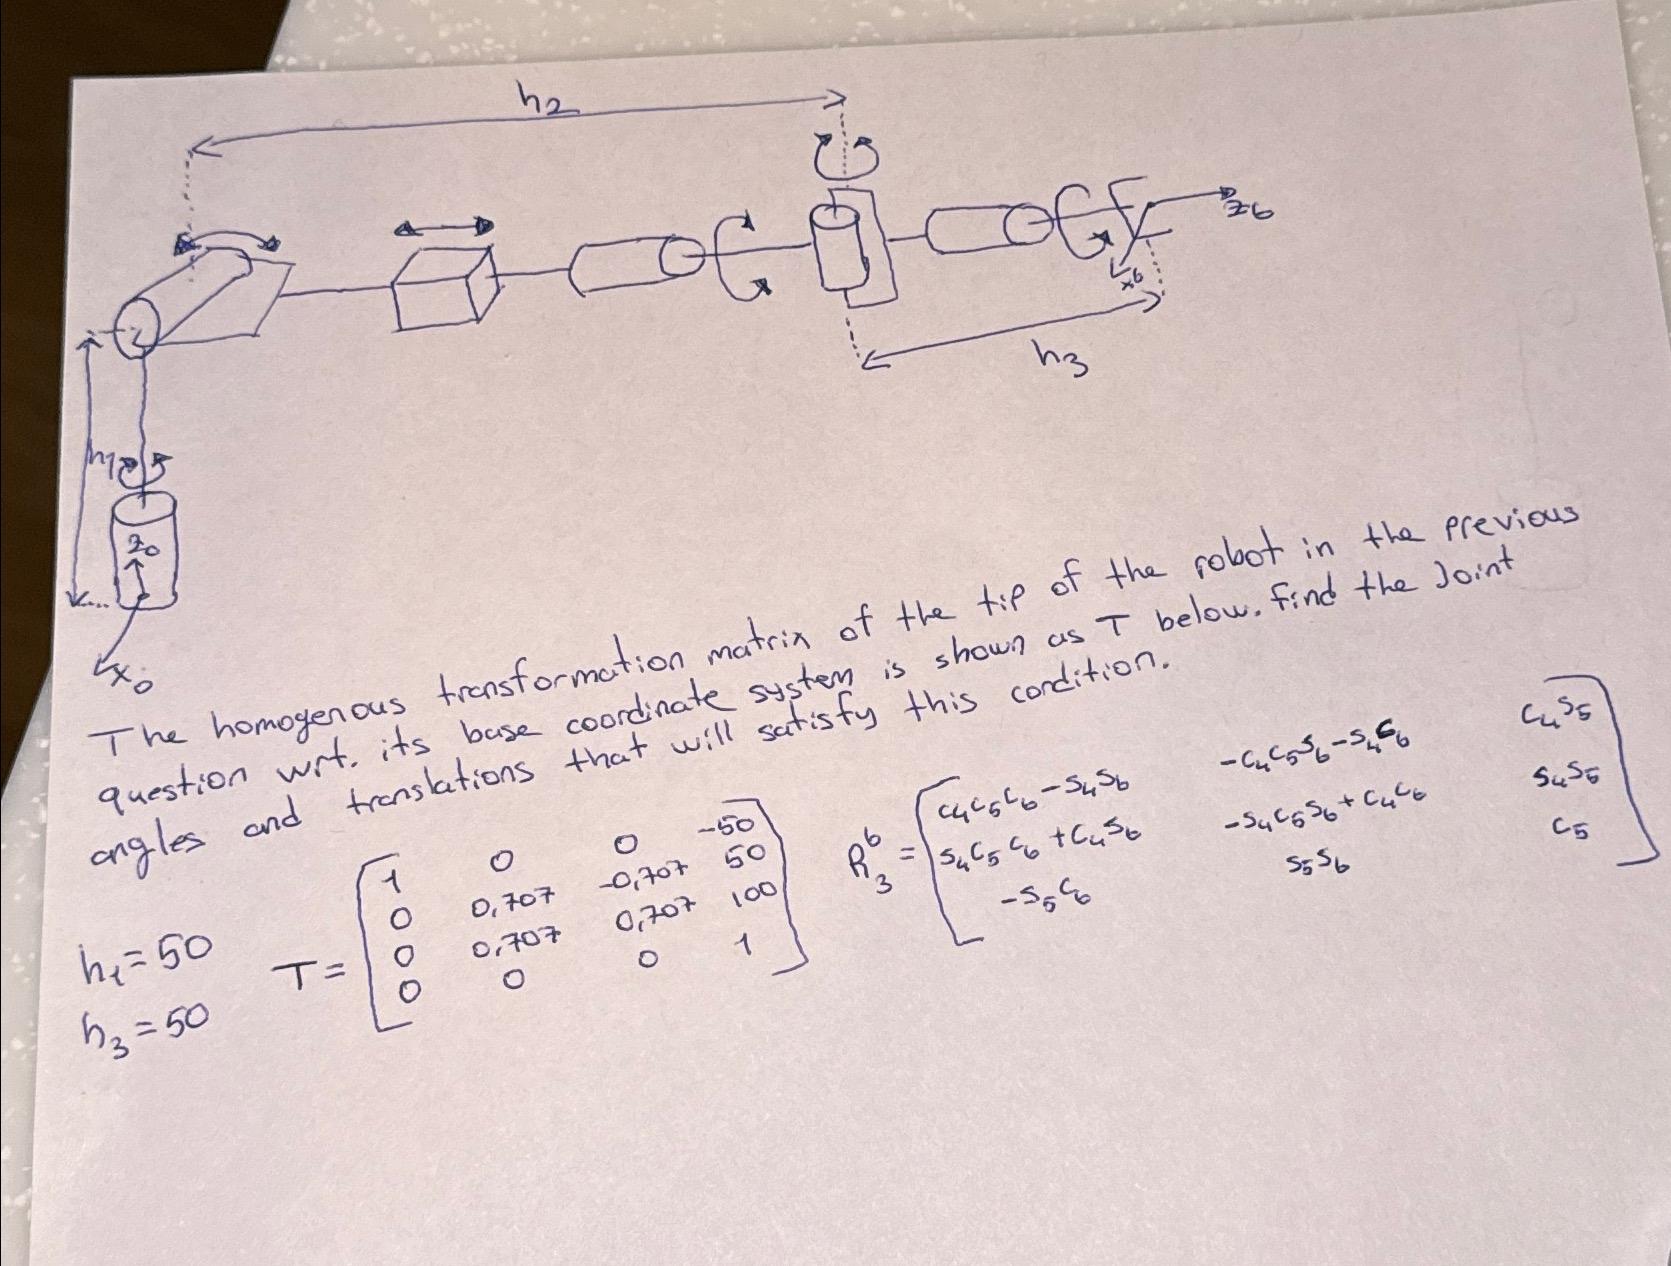 h2
z6
x6
h3
h1
z0
x0
The homogenous transformation matrix of the tip of the robot in the previous
question wrt. its base coordinate system is shown as T below. find the Joint
angles and translations that will satisfy this condition.
h1=50
h3=50
T=
1 0 0 -50
0 0,707 -0,707 50
0 0,707 0,707 100
0 0 0 1
R3^6 =
c4c5c6-s4s6 -c4c5s6-s4c6 c4s5
s4c5c6+c4s6 -s4c5s6+c4c6 s4s5
-s5c6 s5s6 c5